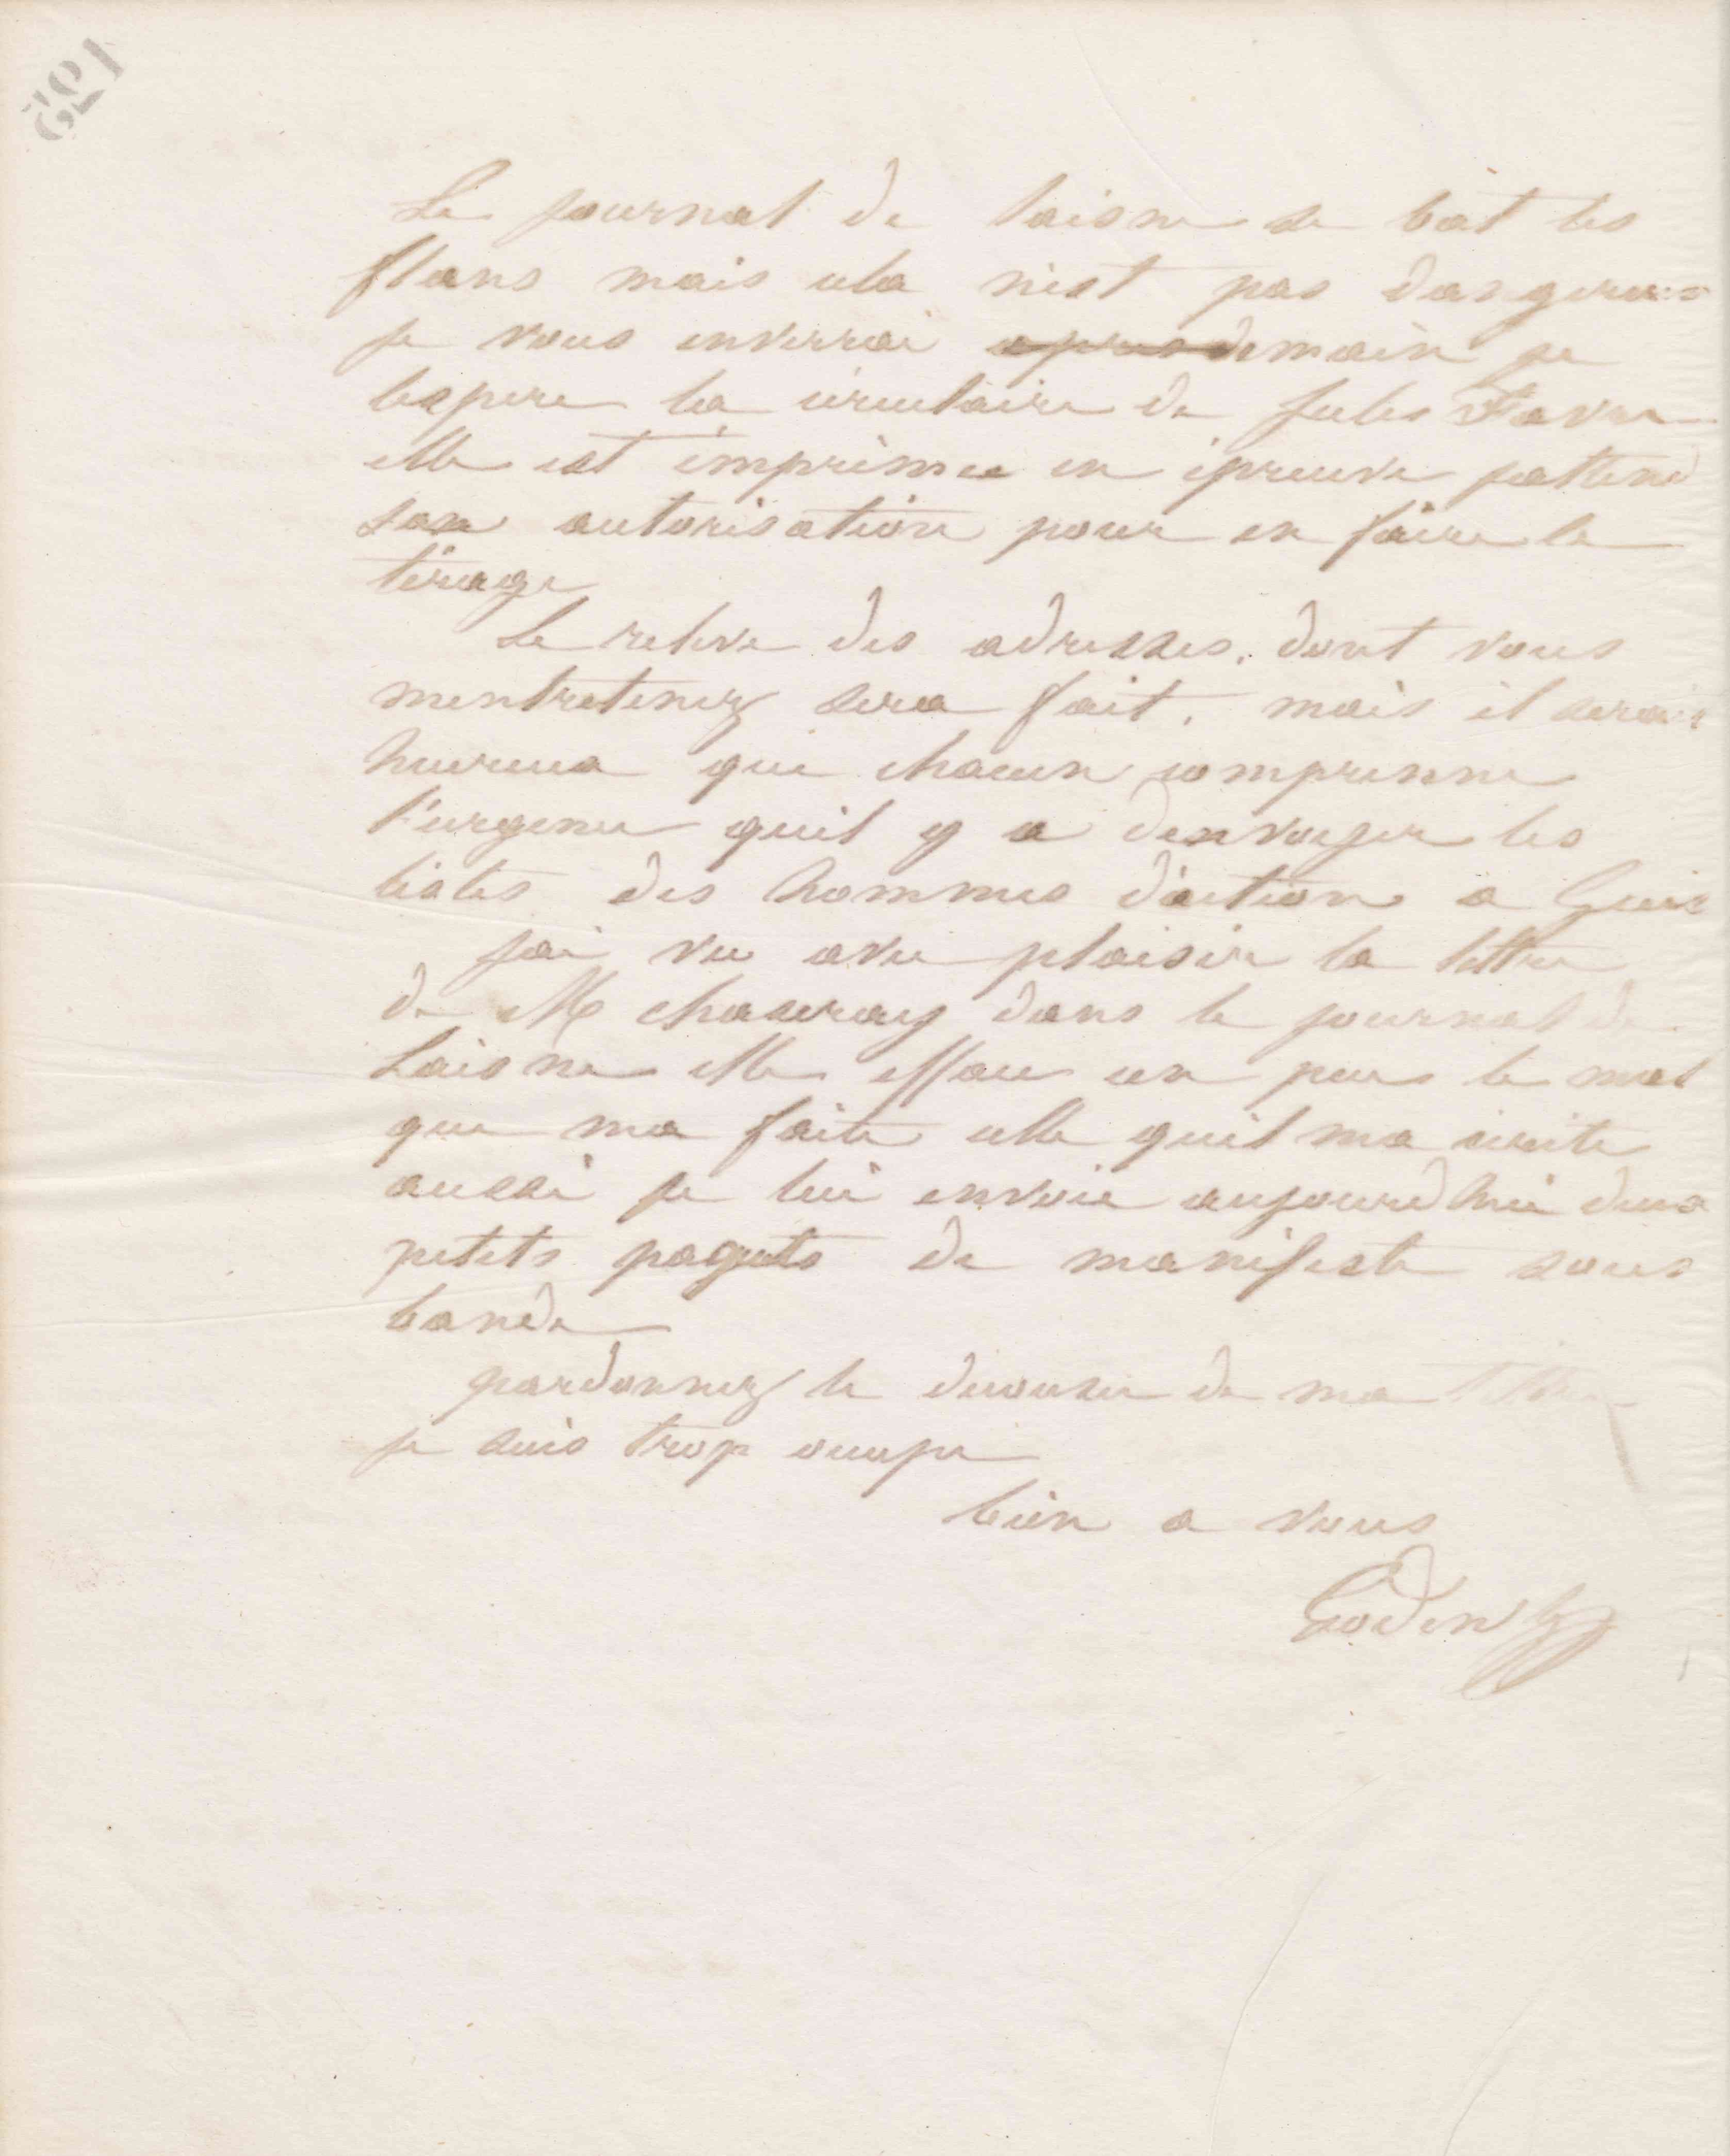 Le journal de laisne se bat les
flans mais cela n'est pas dangereux
je vous enverrai apres demain je
lespere la circulaire de Jules Favre
elle est imprimee en épreuve jattend
son autorisation pour en faire le
tirage
Le releve des adresses. dont vous
mentretenez sera fait. mais il serait
heureux que chacun comprenne
l'urgence quil y a denvoyer les
listes des hommes daction a Guise
jai vu avec plaisir la lettre
de M chaseray dans le journal de
Laisne elle efface un peu le mal
que ma faite celle quil ma ecrite
aussi je lui envoie aujourdhui deux
petits paquets de manifeste sous
bande
pardonnez le decousu de ma lettre
je suis trop occupe
bien a vous
Godin